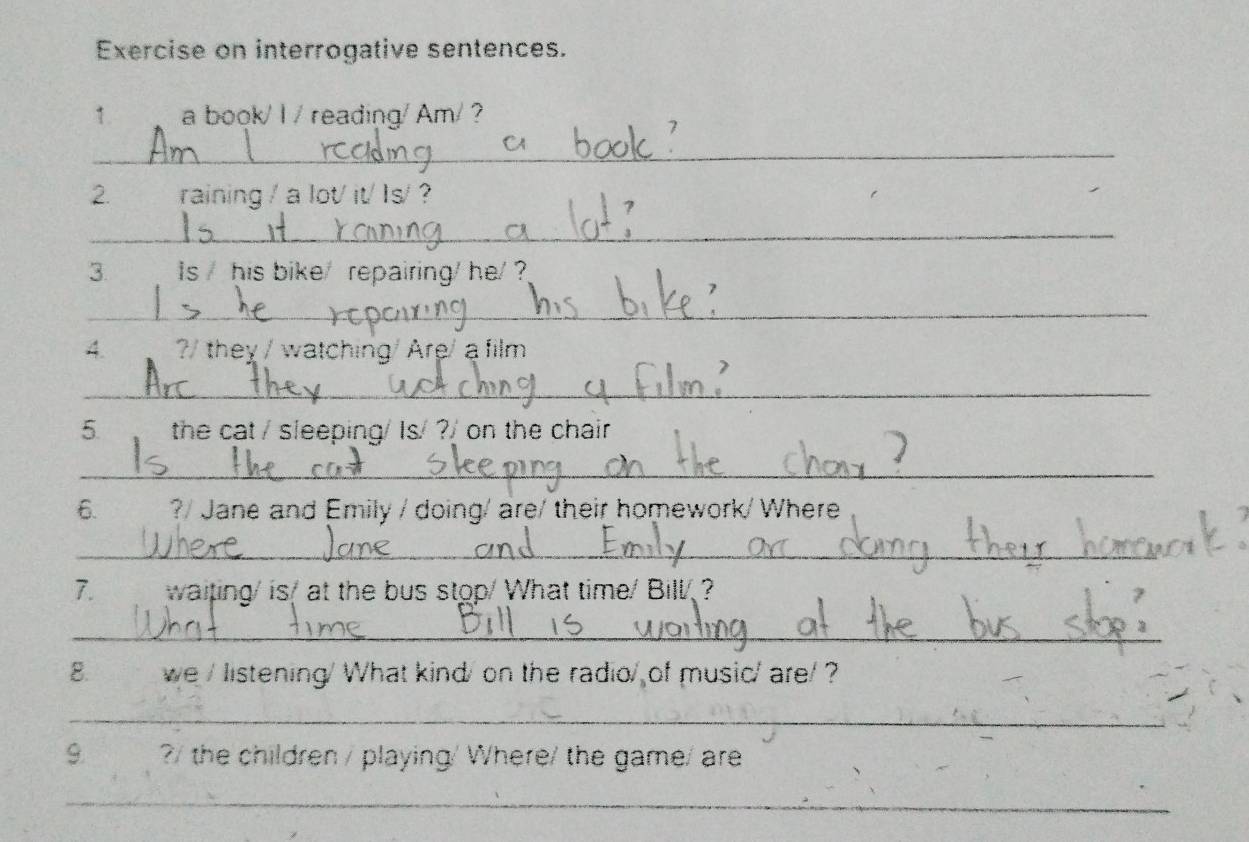 Exercise on interrogative sentences.
1. a book/ I / reading/ Am/ ?
Am I reading a book?
2. raining / a lot/ it/ Is/ ?
Is it raning a lot?
3. is / his bike/ repairing/ he/ ?
Is he repairing his bike?
4. ?/ they / watching/ Are/ a film
Are they watching a film?
5. the cat / sleeping/ Is/ ?/ on the chair
Is the cat sleeping on the chair?
6. ?/ Jane and Emily / doing/ are/ their homework/ Where
Where Jane and Emily are doing their homework?
7. waiting/ is/ at the bus stop/ What time/ Bill/ ?
What time Bill is waiting at the bus stop?
8. we / listening/ What kind/ on the radio/ of music/ are/ ?
9. ?/ the children / playing/ Where/ the game/ are